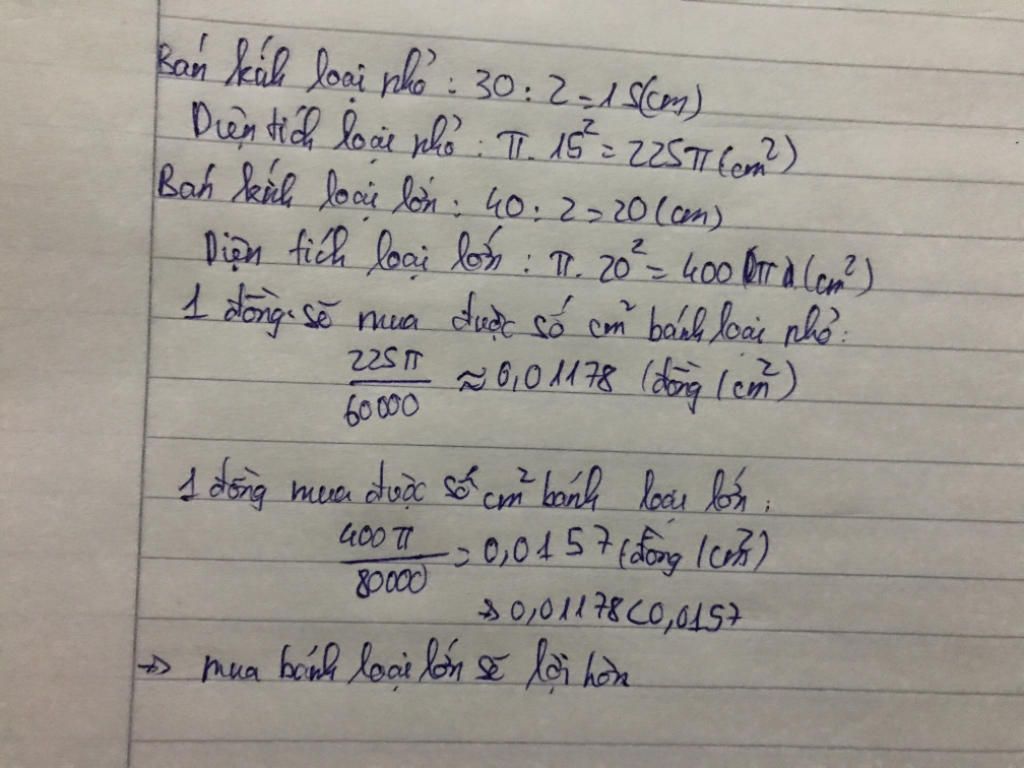 Bán kính loại nhỏ : 30 : 2 = 15(cm)
Diện tích loại nhỏ : π. 15² = 225π (cm²)
Bán kính loại lớn : 40 : 2 = 20 (cm)
Diện tích loại lớn : π. 20² = 400 π (cm²)
1 đồng sẽ mua được số cm² bánh loại nhỏ :
225π / 60000 ≈ 0,01178 (đồng / cm²)
1 đồng mua được số cm² bánh loại lớn :
400π / 80000 = 0,0157 (đồng / cm²)
→ 0,01178 < 0,0157
→ mua bánh loại lớn sẽ lợi hơn